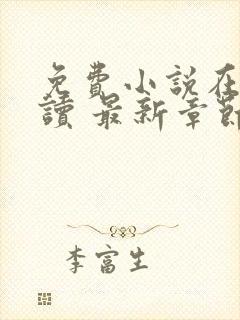 免费小説在
讀 最新章節
李富生